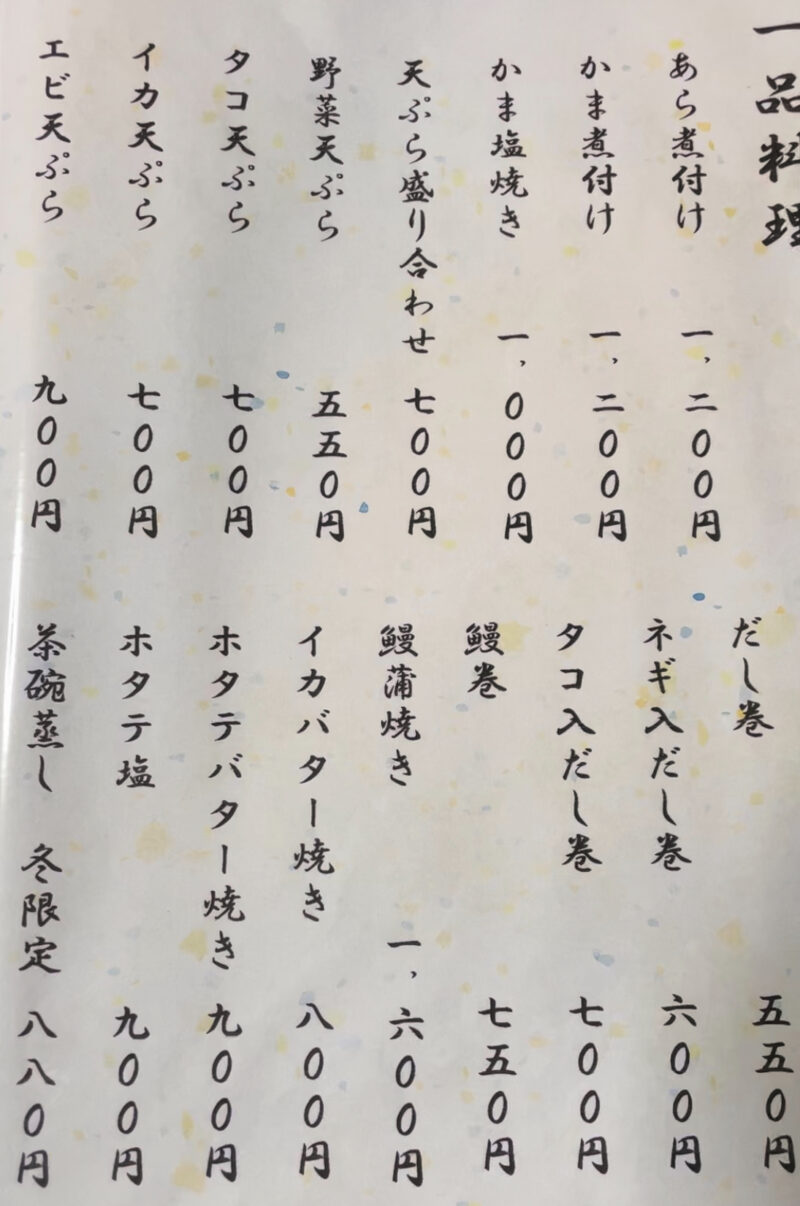 一品料理
あら煮付け 一、二００円
かま煮付け 一、二００円
かま塩焼き 一、０００円
天ぷら盛り合わせ 七００円
野菜天ぷら 五五０円
タコ天ぷら 七００円
イカ天ぷら 七００円
エビ天ぷら 九００円
だし巻 五五０円
ネギ入だし巻 六００円
タコ入だし巻 七００円
鰻巻 七五０円
鰻蒲焼き 一、六００円
イカバター焼き 八００円
ホタテバター焼き 九００円
ホタテ塩 九００円
茶碗蒸し 冬限定 八八０円